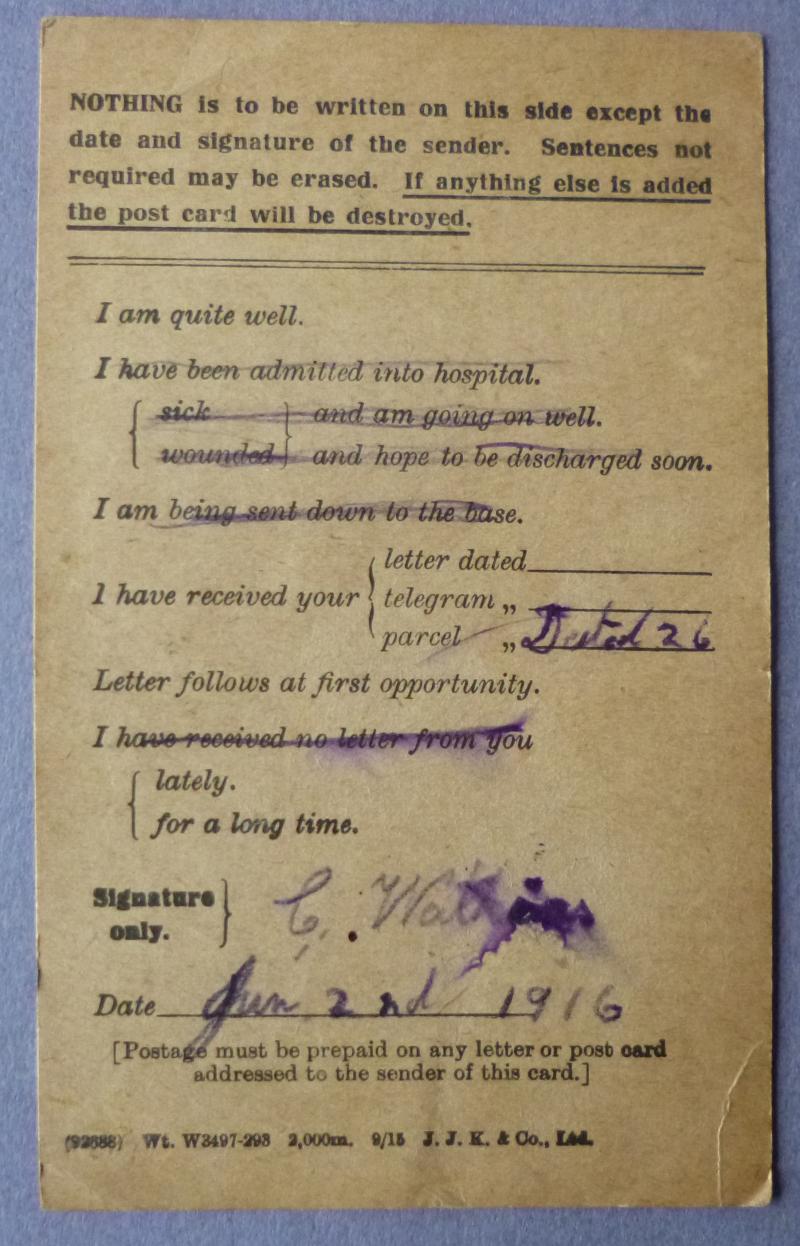 NOTHING is to be written on this side except the
date and signature of the sender. Sentences not
required may be erased. If anything else is added
the post card will be destroyed.
I am quite well.
I have been admitted into hospital.
{ sick } and am going on well.
{ wounded } and hope to be discharged soon.
I am being sent down to the base.
letter dated
I have received your { telegram „
parcel „ Dated 26
Letter follows at first opportunity.
I have received no letter from you
{ lately.
for a long time.
Signature } C. Watkins
only.
Date Jun 2nd 1916
[Postage must be prepaid on any letter or post card
addressed to the sender of this card.]
Wt. W3497-293 2,000m. 9/15 J. J. K. & Co., Ltd.